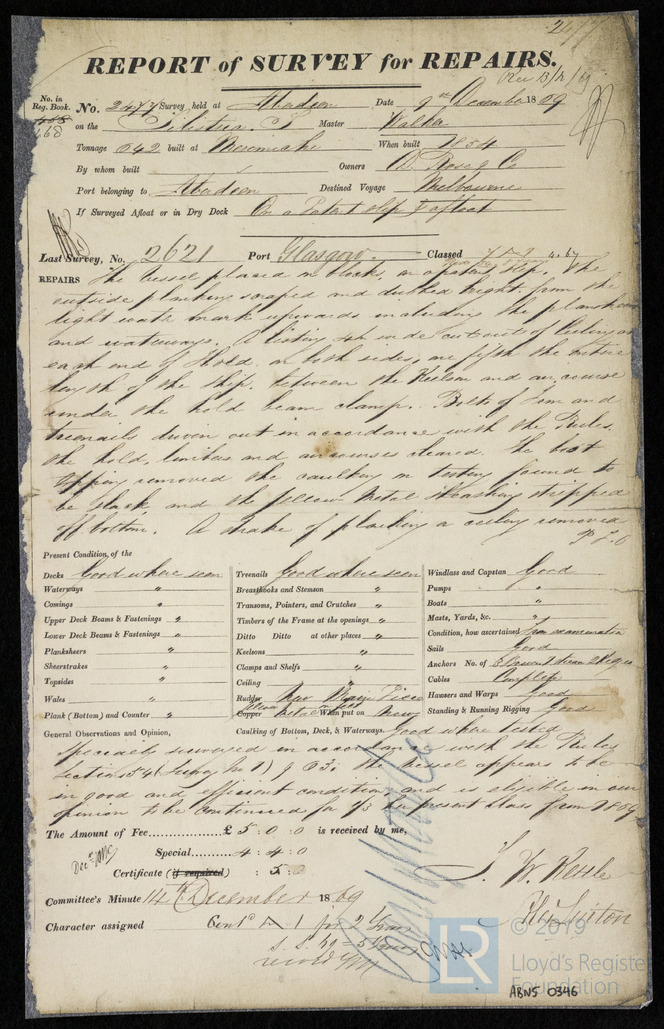 REPORT of SURVEY for REPAIRS.
No. in Reg. Book.
668
No. 2477 Survey held at Aberdeen Date 9th December 1869
on the Master Walker
Tonnage 642 built at When built 1854
By whom built Owners D. Rose & Co
Port belonging to Aberdeen Destined Voyage Melbourne
If Surveyed Afloat or in Dry Dock On a Patent slip & afloat
Last Survey, No. 2621 Port Glasgow. Classed 4. 67
REPAIRS The vessel placed on blocks, on a patent slip. The
outside planking scraped and bright from the
light water mark upwards including the
and waterways. A listing 4 in wide cut out of ceiling at
each end of Hold on both sides, one fifth the entire
length of the ship, between the Keelson and air course
under the hold beam clamp. Bolts of Iron and
treenails driven out in accordance with the Rules.
the hold, limbers and air courses cleared. The boot
topping removed the caulking on testing found to
be slack, and the yellow metal sheathing stripped
off bottom. A strake of planking & ceiling removed
P.T.O
Present Condition, of the
Decks Good where seen
Waterways "
Comings "
Upper Deck Beams & Fastenings "
Lower Deck Beams & Fastenings "
Planksheers "
Sheerstrakes "
Topsides "
Wales "
Plank (Bottom) and Counter "
Treenails Good where seen
Breasthooks and Stemson "
Transoms, Pointers, and Crutches "
Timbers of the Frame at the openings "
Ditto Ditto at other places "
Keelsons "
Clamps and Shelfs "
Ceiling "
Rudder New Main Piece
Copper Yellow metal on felt When put on New
Caulking of Bottom, Deck, & Waterways. Good where tested
Windlass and Capstan Good
Pumps "
Boats "
Masts, Yards, &c. "
Condition, how ascertained from examination
Sails Good
Anchors No. of
Cables Complete
Hawsers and Warps Good
Standing & Running Rigging Good
General Observations and Opinion,
Specially surveyed in accordance with the Rules
Section 54 of 63; the vessel appears to be
in good and efficient condition, and is eligible in our
opinion to be continued for 2/3 her present class from 1869
The Amount of Fee £ 5 : 0 : 0 is received by me,
Special 4 : 4 : 0
Certificate (if required) : 5 : 0
J. W. Kettle
Committee's Minute 14th December 1869
Character assigned Cont'd A 1 for 2 Years
© 2019
LR
Lloyd's Register
Foundation
ABN5 0346